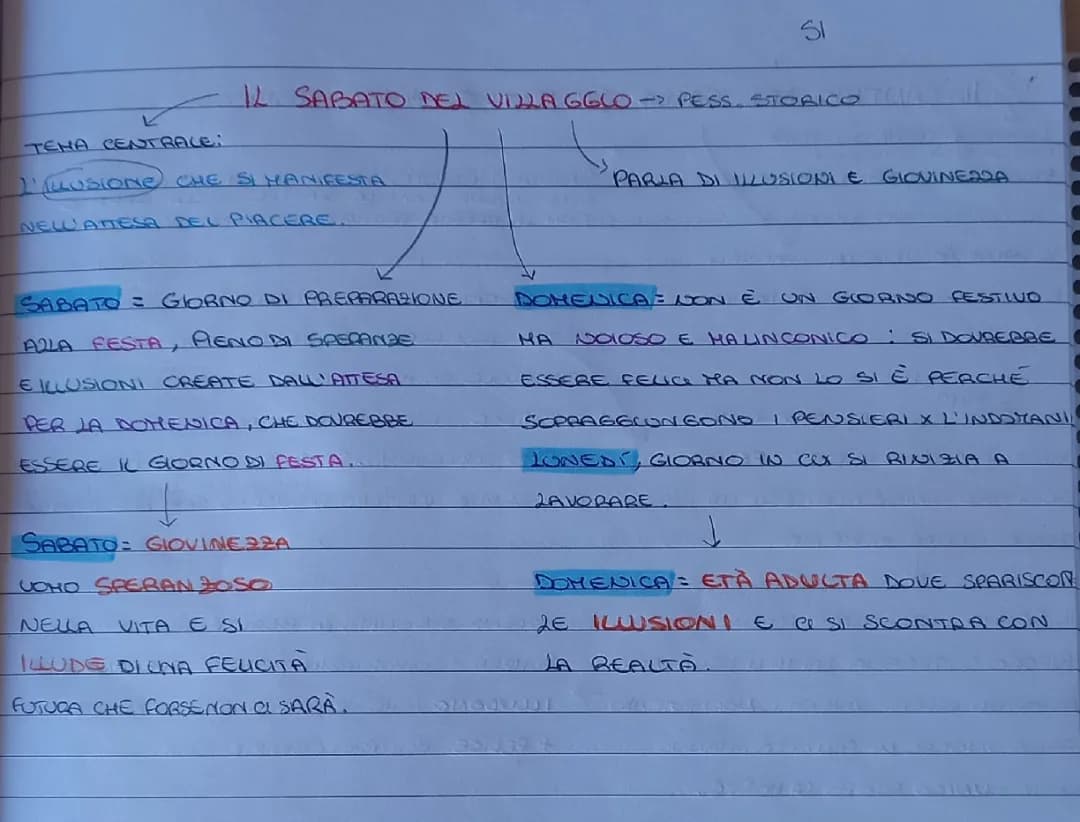 SI
IL SABATO DEL VILLAGGIO → PESS. STORICO
TEMA CENTRALE:
L'ILLUSIONE CHE SI MANIFESTA
NELL'ATTESA DEL PIACERE.
PARLA DI ILLUSIONI E GIOVINEZZA
SABATO = GIORNO DI PREPARAZIONE
ALLA FESTA, PIENO DI SPERANZE
E ILLUSIONI CREATE DALL'ATTESA
PER LA DOMENICA, CHE DOVREBBE
ESSERE IL GIORNO DI FESTA.
DOMENICA = NON È UN GIORNO FESTIVO
MA NOIOSO E MALINCONICO : SI DOVREBBE
ESSERE FELICI MA NON LO SI È PERCHÉ
SOPRAGGIUNGONO I PENSIERI X L'INDOMANI
LUNEDÌ, GIORNO IN CUI SI RINIZIA A
LAVORARE.
SABATO = GIOVINEZZA
UOMO SPERANZOSO
NELLA VITA E SI
ILLUDE DI UNA FELICITÀ
FUTURA CHE FORSE NON CI SARÀ.
DOMENICA = ETÀ ADULTA DOVE SPARISCON
LE ILLUSIONI E CI SI SCONTRA CON
LA REALTÀ.